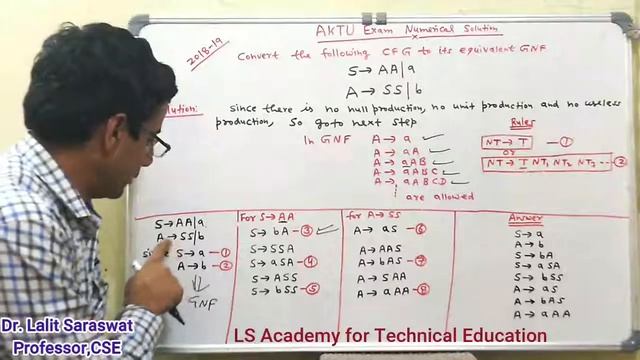 AKTU Exam Numerical Solution
2018-19
Convert the following CFG to its equivalent GNF
S → AA|a
A → SS|b
Solution:
since there is no null production, no unit production and no useless
production, So goto next step
Rules
In GNF
A → a
A → aA
A → aAB
A → aABC
A → aABCD
are allowed
NT → T —①
or
NT → T NT1 NT2 NT3 ... —②
S → AA|a
A → SS|b
since S → a —①
A → b —②
GNF
For S → AA
S → bA —③
S → SSA
S → aSA —④
S → ASS
S → bSS —⑤
for A → SS
A → aS —⑥
A → AAS
A → bAS —⑦
A → SAA
A → aAA —⑧
Answer
S → a
A → b
S → bA
S → aSA
S → bSS
A → aS
A → bAS
A → aAA
Dr. Lalit Saraswat
Professor,CSE
LS Academy for Technical Education